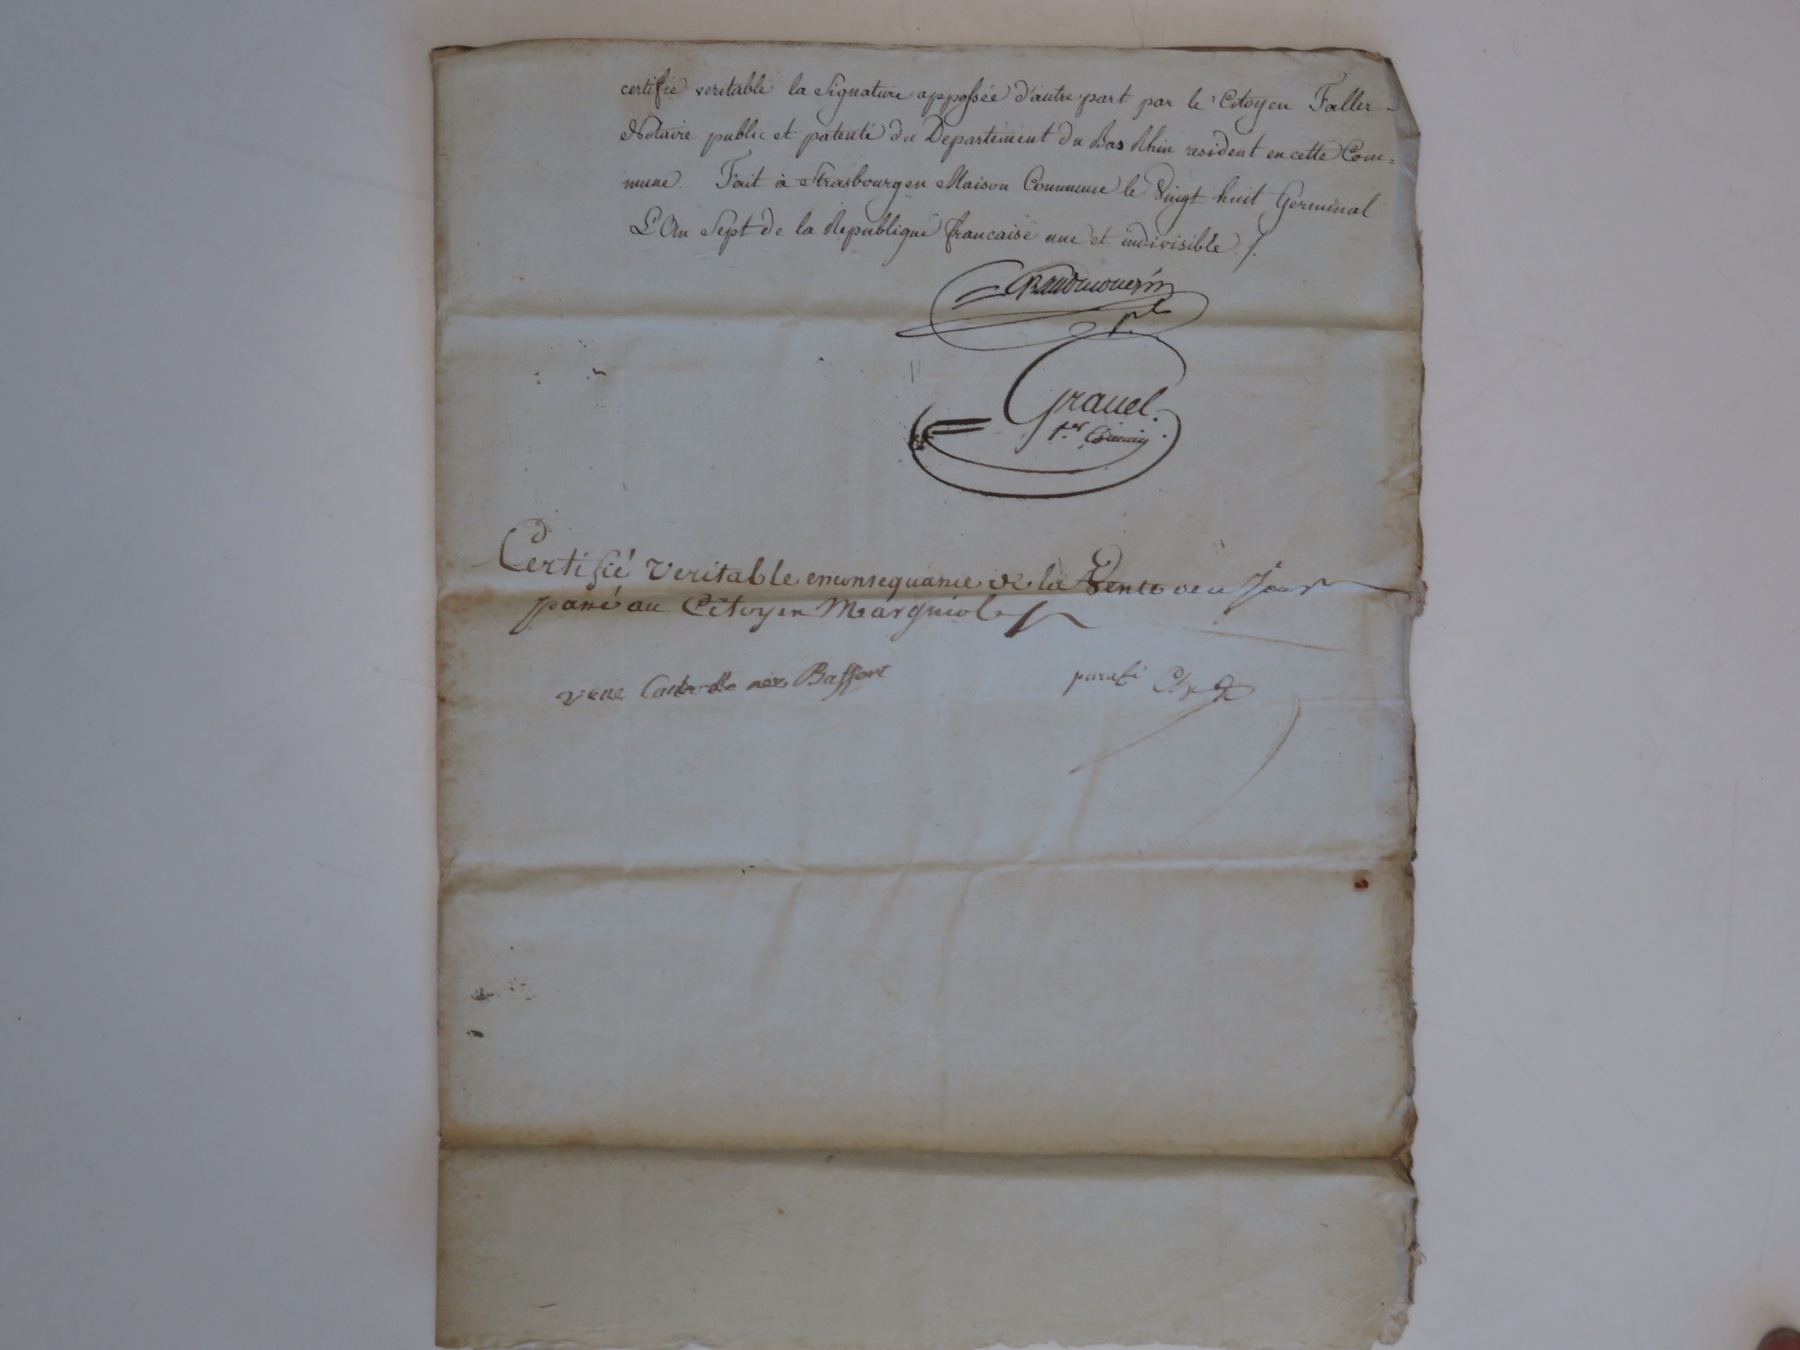 certifie veritable la Signature appossée d'autre part par le Citoyen Faller
Notaire public et patenté du Departement du Bas Rhin resident en cette Com=
mune. Fait à Strasbourg en Maison Commune le Vingt huit Germinal
L'An Sept de la Republique francaise une et indivisible ./.
Grauel.
Certifié veritable enconsequance de la Vente de ce Jour
passé au Citoyen Margniol
veuve née Baffort